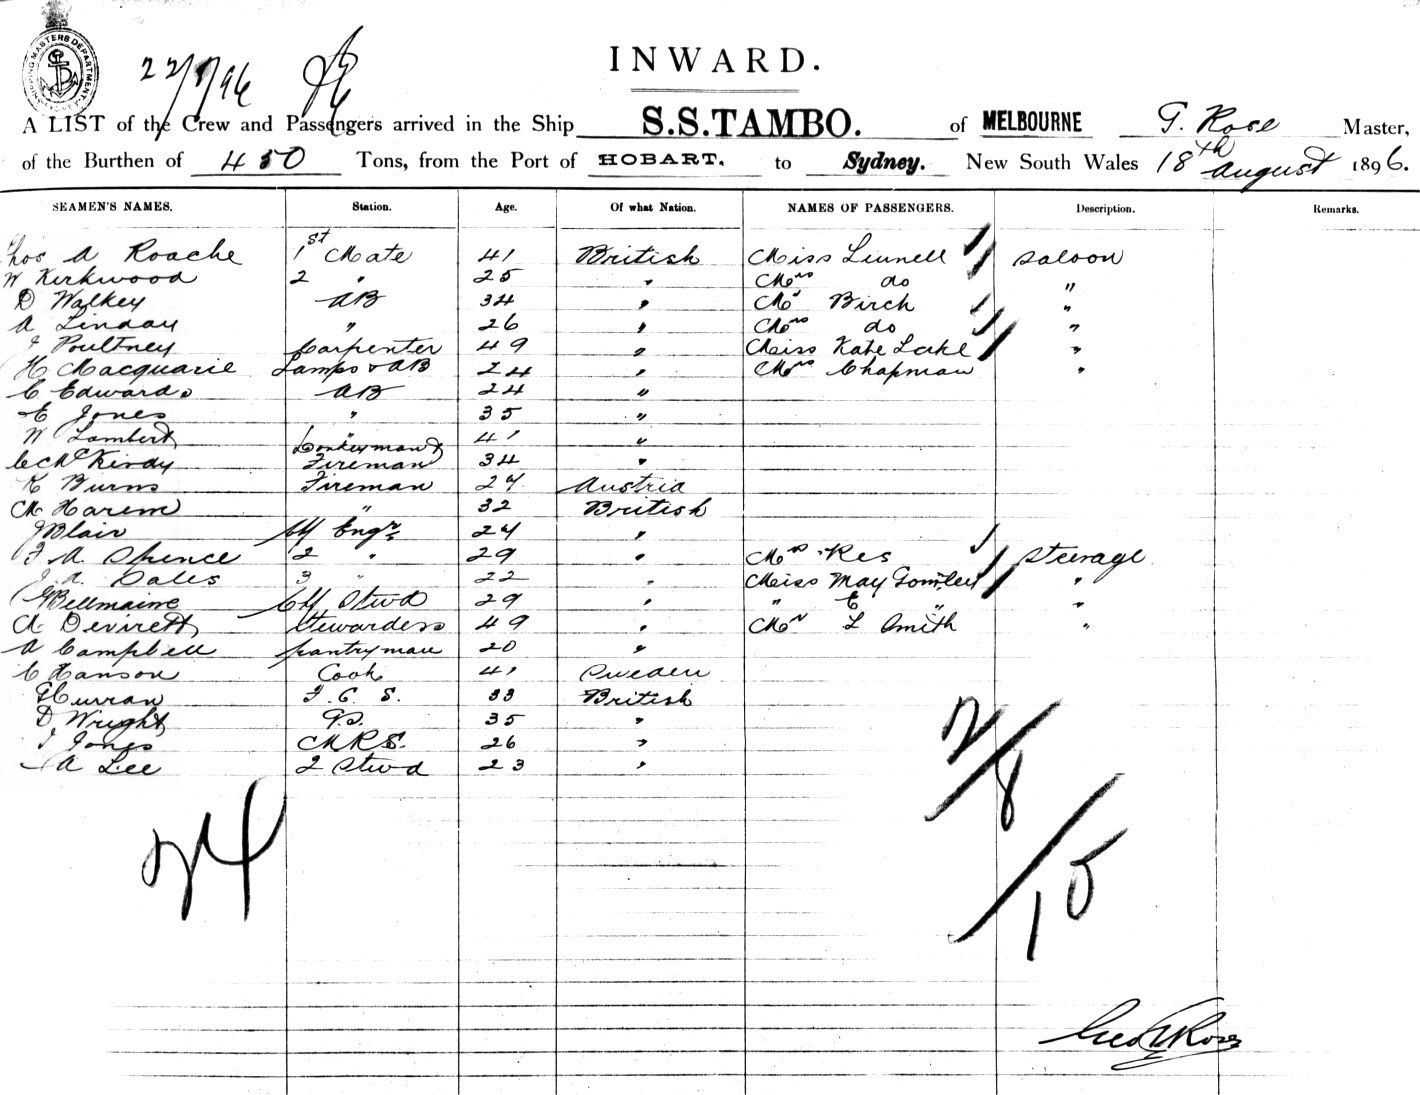 SHIPPING MASTERS DEPARTMENT
INWARD.
A LIST of the Crew and Passengers arrived in the Ship S.S. TAMBO. of MELBOURNE G. Rose Master,
of the Burthen of 450 Tons, from the Port of HOBART. to Sydney. New South Wales 18th August 1896.
SEAMEN'S NAMES. Station. Age. Of what Nation. NAMES OF PASSENGERS. Description. Remarks.
Thos A Roache 1st Mate 41 British Miss Linnell Saloon
W Kirkwood 2 " 25 " Mrs do "
D Walkey AB 34 " Mr Birch "
A Linday " 26 " Mrs do "
J Poultney Carpenter 49 " Miss Kate Lake "
H Macquarie Lamps & AB 24 " Mrs Chapman "
C Edwards AB 24 "
E Jones " 35 "
W Lambert " 41 "
McKirdy Donkeyman & Fireman 34 "
K Burns Fireman 27 Austria
M Harem " 32 British
J Blair Chf Engr 24 "
F. A. Spence 2 " 29 " Mrs Res Steerage
J. A. Sales 3 " 22 " Miss May "
Bellmaine Chf Stwd 29 " " E " "
M Devirett Stewardess 49 " Mr L Smith "
A Campbell Pantryman 20 "
C Hanson Cook 41 Sweden
Curran F. C. S. 33 British
D Wright 35 "
J Jones M.R.S. 26 "
A Lee 2 Stwd 23 "
24
2/8/10
Geo Rose